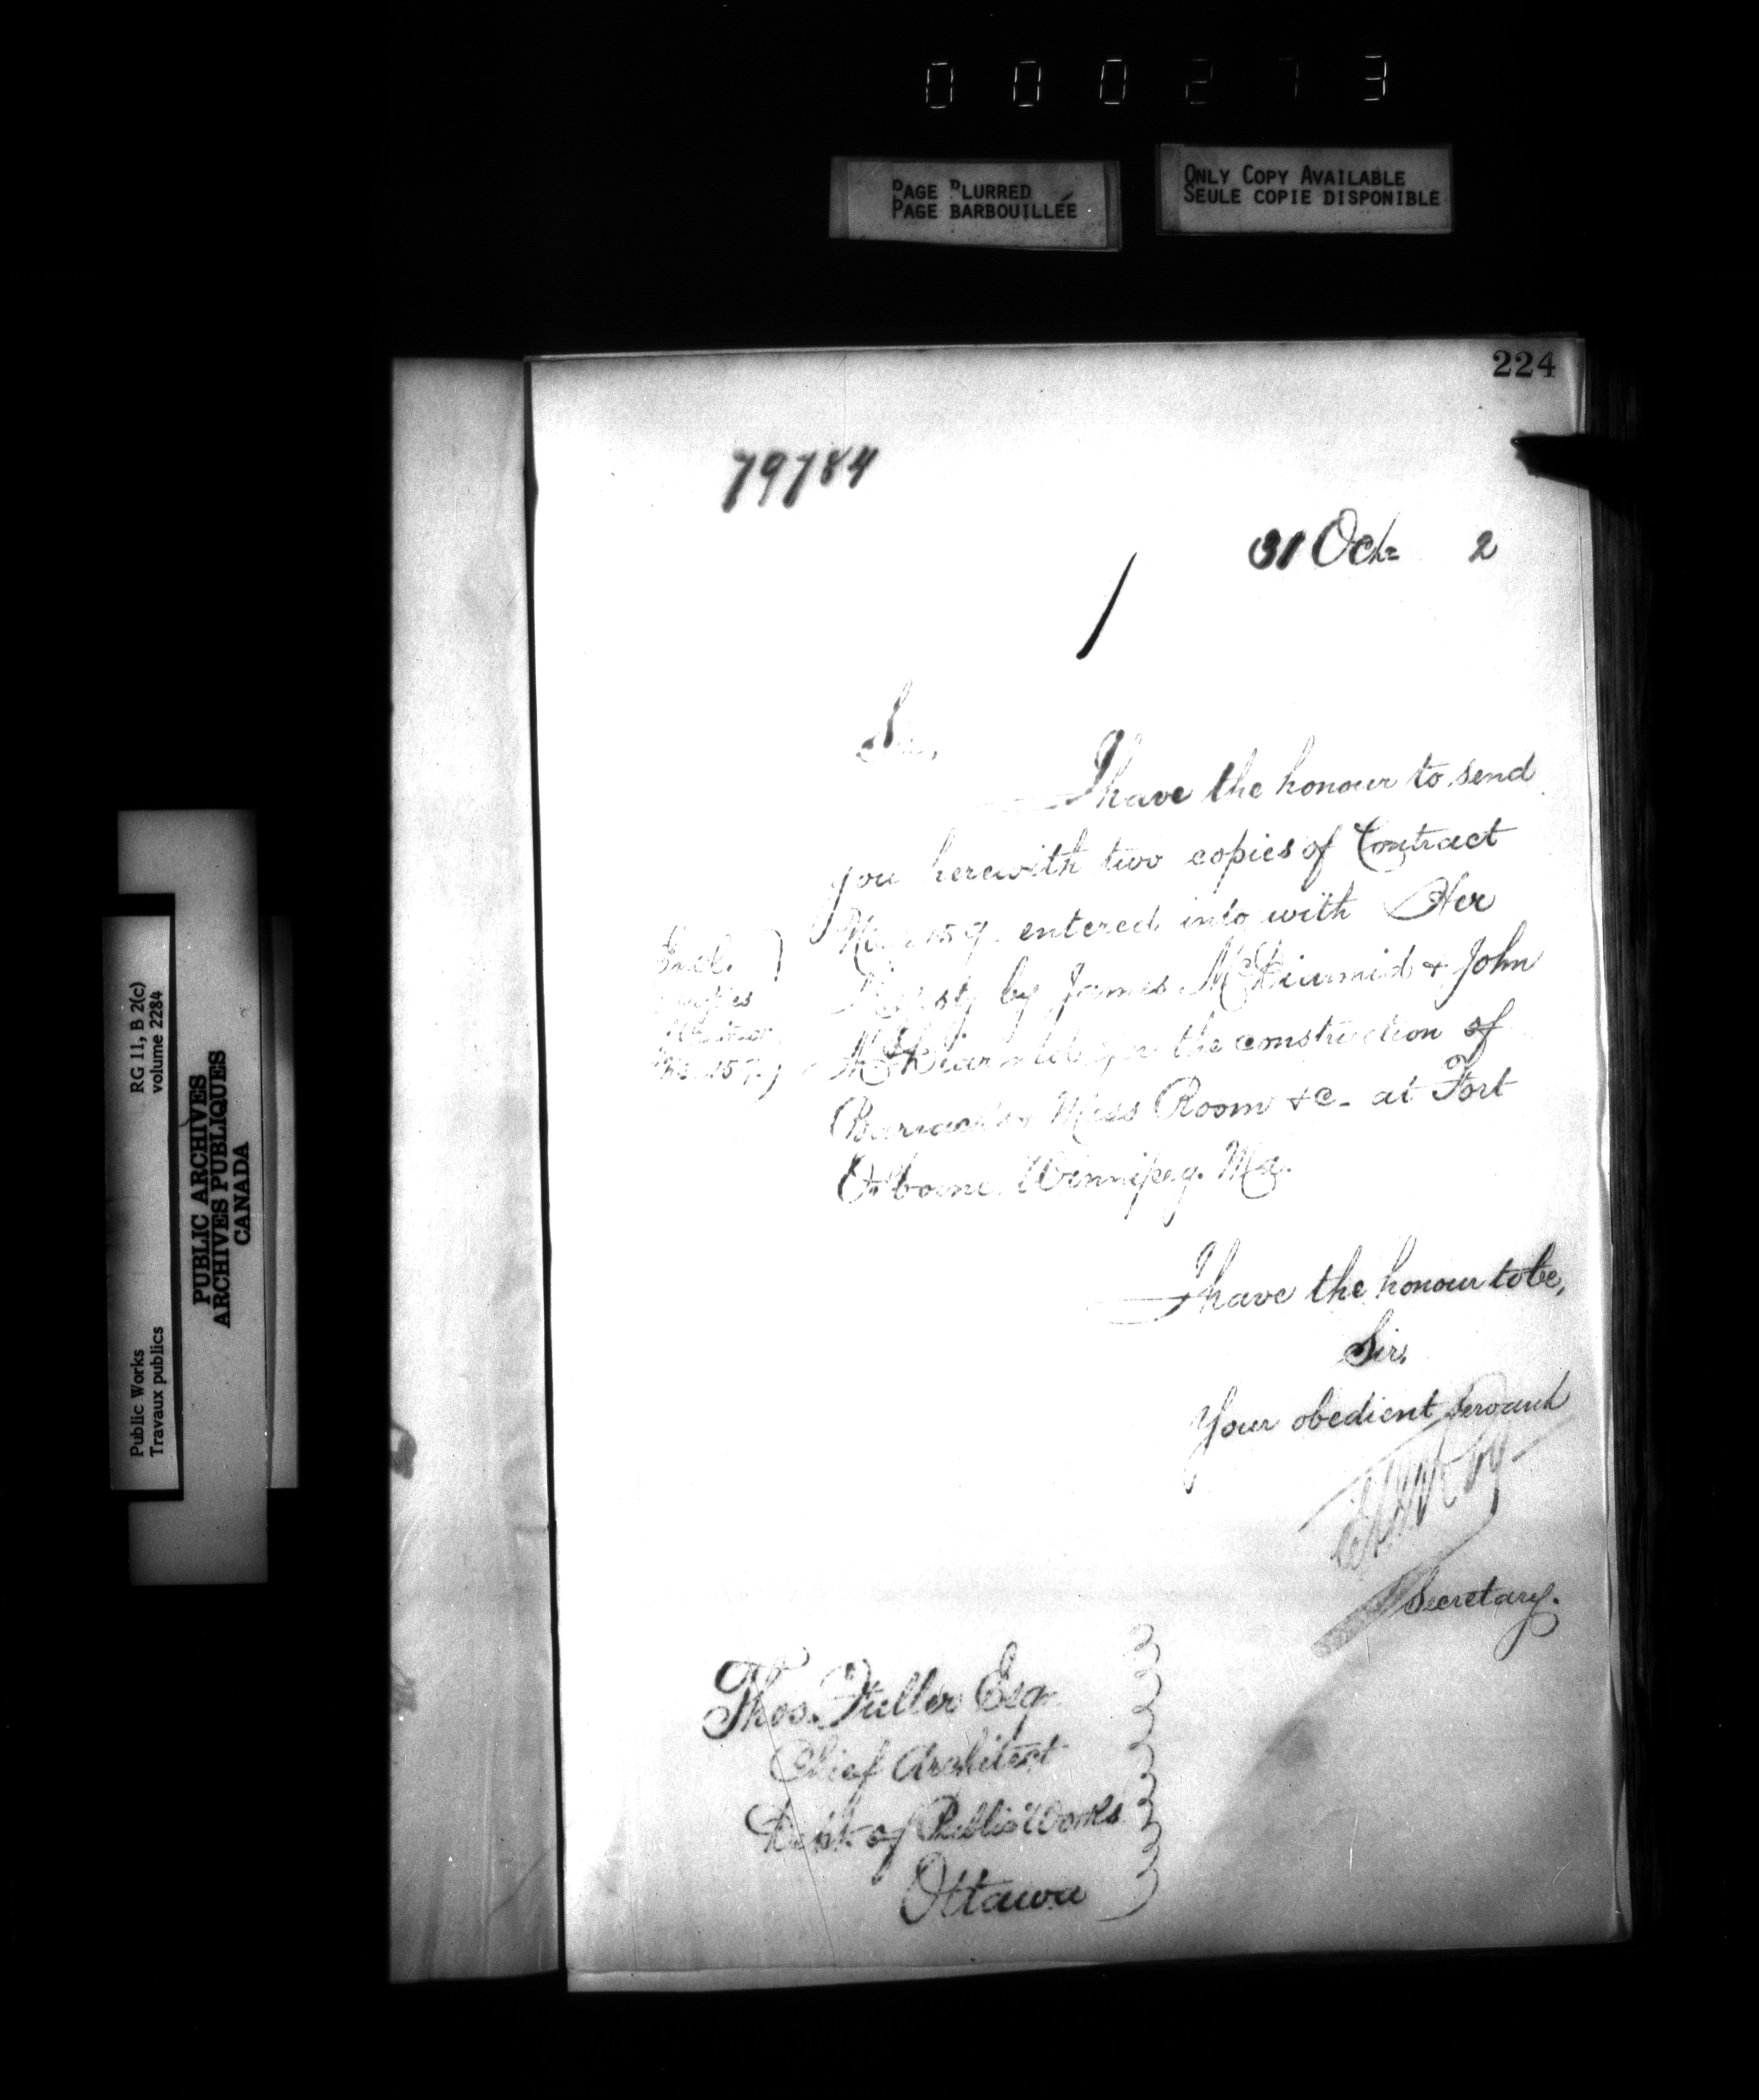 000273
PAGE BLURRED
PAGE BARBOUILLÉE
ONLY COPY AVAILABLE
SEULE COPIE DISPONIBLE
224
79784
31 Oct. 2
Sir,
I have the honour to send
you herewith two copies of Contract
No. 159 entered into with Her
Majesty by James McDiarmid & John
McDiarmid for the construction of
Barracks, Mess Room &c. at Fort
Osborne, Winnipeg, Ma.
Encl.
copies
Contract
No. 159
I have the honour to be,
Sir,
Your obedient servant
Secretary.
Thos. Fuller Esq.
Chief Architect
Dept. of Public Works
Ottawa
Public Works
Travaux publics
RG 11, B 2(c)
volume 2284
PUBLIC ARCHIVES
ARCHIVES PUBLIQUES
CANADA